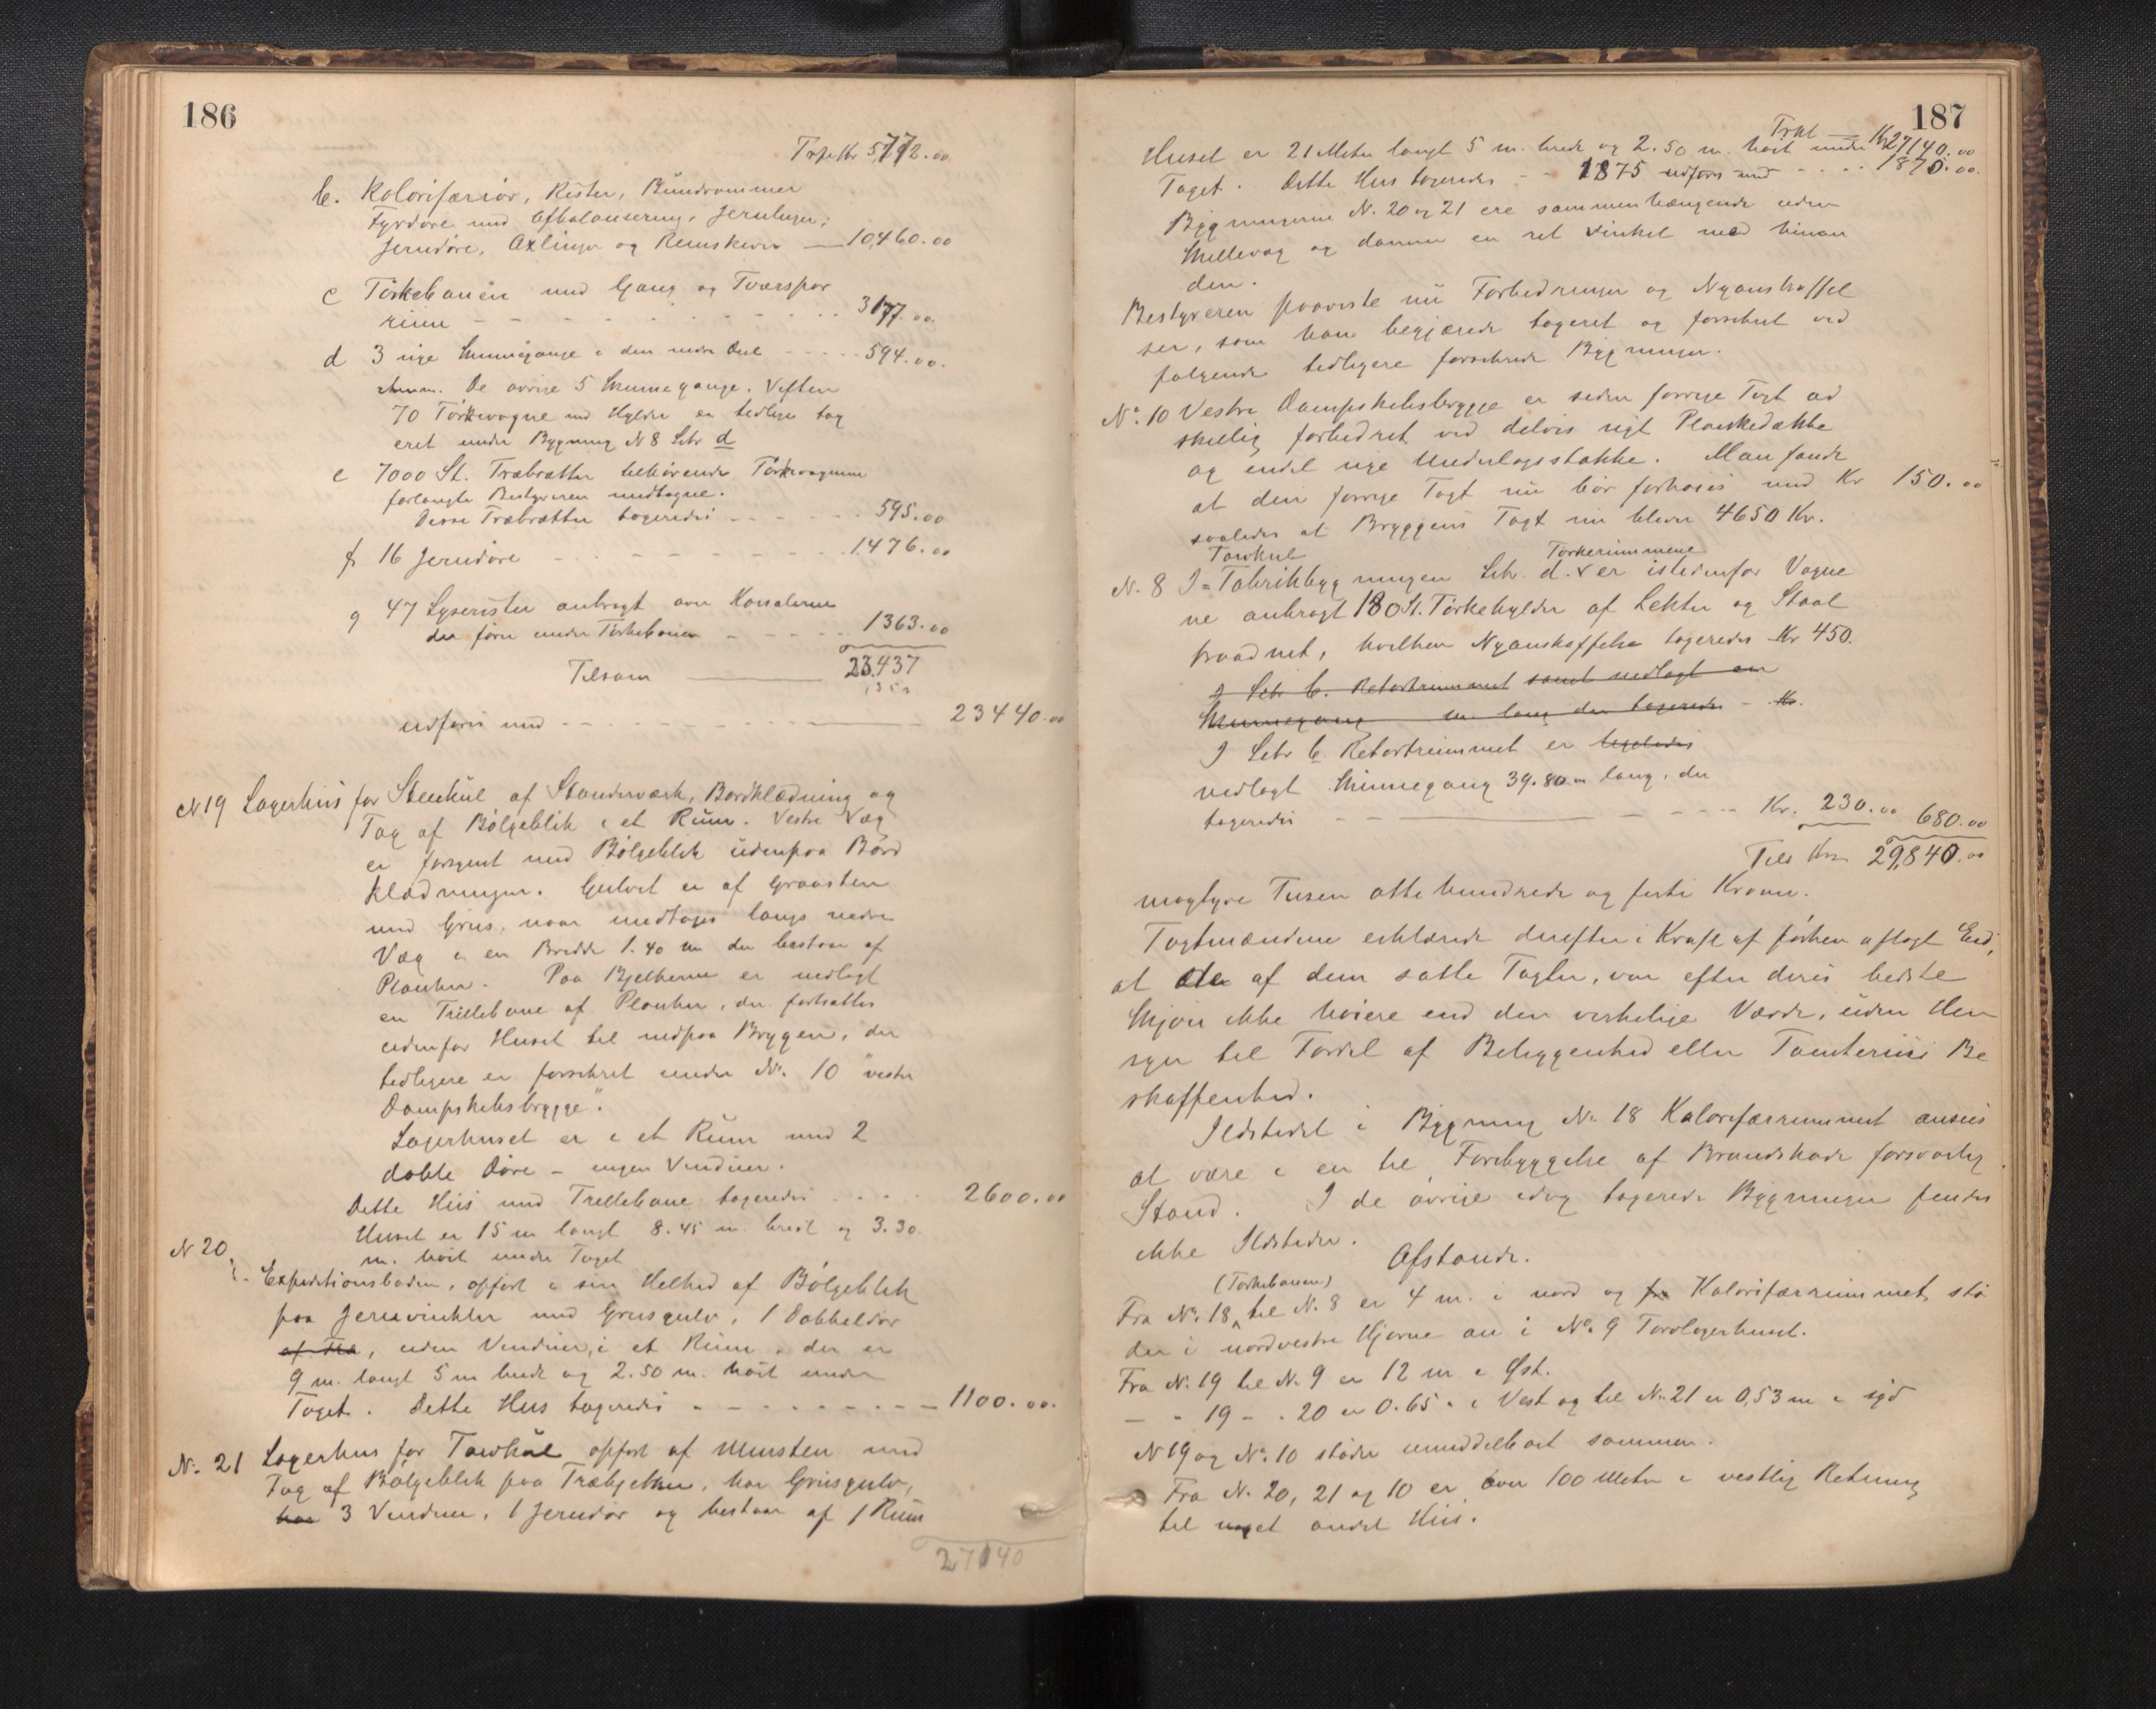 186
Trpt Kr 5,772.00
b. Kalorifærrör, Rister, Bundrammer
Fyrdøre med Afbalansering, Jernluger,
Jerndøre, Axlinger og Remskiver — 10,460.00
c Törkebanen med Gang og Tværspor
rum - - - - 3177.00.
d 3 nye Svinnegange i den nedre Del - - - - 594.00.
Anm. De øvrige 5 Svinnegange, Viften
70 Törkevogne med Hylder er tidligere tag
eret under Bygning N 8 Litr d
e 7000 St. Træbrætter tilhörende Törkevognene
forlangte Bestyreren medtagne.
Disse Træbrætter tageredes - - - - 595.00
f 16 Jerndøre - - - - 1476.00
g 47 Lyserister anbragt over Kanalerne
der fører under Törkebanen - - - - 1363.00
Tilsam — 23.437
udføres med - - - - — 23440.00
N 19 Lagerhus for Stenkul af Standerværk, Bordklædning og
Tag af Bölgeblik i et Rum. Vestre Væg
er forsynet med Bölgeblik udenpaa Bord
klædningen. Gulvet er af Graasten
med Grus, naar undtages langs nedre
Væg i en Bredde 1.40 m der bestaar af
Planker. Paa Bjelkerne er nedlagt
en Trillebane af Planker, der fortsættes
udenfor Huset til nedpaa Bryggen, der
tidligere er forsikret under No. 10 "vestre
Dampskibsbrygge".
Lagerhuset er i et Rum med 2
doble Døre - ingen Vinduer.
Dette Hus med Trillebane tageredes . . . . 2600.00
Huset er 15 m langt 8.45 m. bredt og 3.30
m. höit under Taget
N 20
Expeditionsboden, opfört i sin Helhed af Bölgeblik
paa Jernvinkler med Grusgulv, 1 Dobbeldør
af Træ, uden Vinduer, i et Rum, der er
9 m. langt 5 m bredt og 2.50 m. höit under
Taget. Dette Hus tageredes - - - - — 1100.00.
No. 21 Lagerhus for Torvkul opfört af Mursten med
Tag af Bölgeblik paa Træbjelker, har Grusgulv,
har 3 Vinduer, 1 Jerndør og bestaar af 1 Rum
27140
187
Trpt — Kr 27140.00
Huset er 21 Meter langt 5 m. bredt og 2.50 m. höit under
Taget. Dette Hus tageredes - - 1875 udføres med - . . . 1870.00.
Bygningerne N. 20 og 21 ere sammenhængende uden
Skillevæg og danner en ret Vinkel med hinan
den.
Bestyreren paaviste nu Forbedringer og Nyanskaffel
ser, som han begjærede tageret og forsikret ved
følgende tidligere forsikrede Bygninger.
No. 10 Vestre Dampskibsbrygge er siden forrige Taxt ad
skillig forbedret ved delvis nyt Plankedække
og endel nye Underlagsstokke. Man fandt
at den forrige Taxt nu bör forhöies med Kr 150.00
saaledes at Bryggens Taxt nu bliver 4650 Kr.
Torvkul Törkerummene
N. 8 I Fabrikbygningen Litr. d. er istedenfor Vogne
ne anbragt 180 St. Törkehylder af Lekter og Staal
traadnet, hvilken Nyanskaffelse tageredes Kr 450.
I Litr b. Retortrummet samt nedlagt en
Svinnegang m. lang der tageredes - Kr.
I Litr b Retortrummet er ligeledes
nedlagt Svinnegang 39.80 m lang, der
tageredes - - — - - - Kr. 230.00 680.00
Tils Kr 29,840.00
niogtyve Tusen otte hundrede og förti Kroner.
Taxtmændene erklærede derefter i Kraft af förhen aflagt Eed,
at de af dem satte Taxter, var efter deres bedste
Skjön ikke höiere end den virkelige Værdi, uden Hen
syn til Fordel af Beliggenhed eller Tomternes Be
skaffenhed.
Ildstedet i Bygning No 18 Kalorifærrummet ansees
at være i en til Forebyggelse af Brandskade forsvarlig
Stand. I de övrige idag tagerede Bygninger findes
ikke Ildsteder.
Afstande.
(Törkebanen)
Fra No. 18 til N. 8 er 4 m. i nord og fra Kalorifærrummet, stö
der i nordvestre Hjørne an i No. 9 Torvlagerhuset.
Fra N. 19 til N. 9 er 12 m i Øst.
- " 19 - . 20 er 0.65 " i Vest og til No 21 er 0,53 m i syd
N 19 og No. 10 støder umiddelbart sammen.
Fra N. 20, 21 og 10 er over 100 Meter i vestlig Retning
til noget andet Hus.